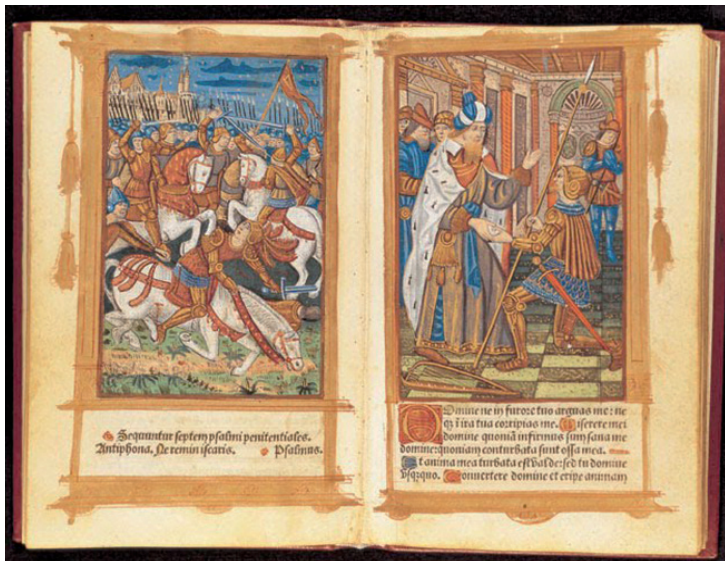 Sequuntur septem psalmi penitentiales.
Antiphona. Ne reminiscaris. Psalmus.
Domine ne in furore tuo arguas me: ne
qȝ ī ira tua corripias me. Miserere mei
domine quoniā infirmus sum sana me
domine: quoniam conturbata sunt ossa mea.
Et anima mea turbata est valde: sed tu domine
vsqȝquo. Conuertere domine et eripe animam